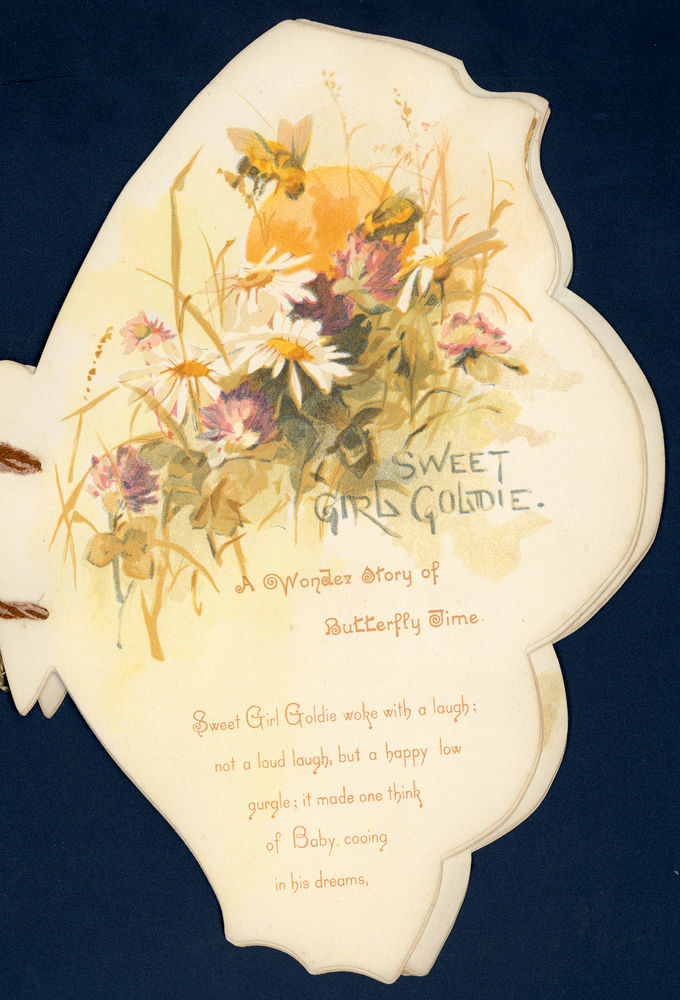 SWEET
GIRL GOLDIE.
A Wonder Story of
Butterfly Time.
Sweet Girl Goldie woke with a laugh;
not a loud laugh, but a happy low
gurgle; it made one think
of Baby cooing
in his dreams,